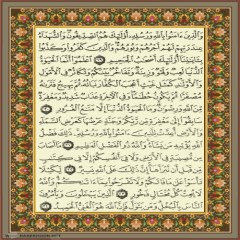 وَالَّذِينَ ءَامَنُوا بِاللَّهِ وَرُسُلِهِ أُولَٰئِكَ هُمُ الصِّدِّيقُونَ وَالشُّهَدَاءُ
عِندَ رَبِّهِمْ لَهُمْ أَجْرُهُمْ وَنُورُهُمْ وَالَّذِينَ كَفَرُوا وَكَذَّبُوا
بِـَٔايَٰتِنَا أُولَٰئِكَ أَصْحَٰبُ الْجَحِيمِ ١٩ اعْلَمُوا أَنَّمَا الْحَيَوٰةُ
الدُّنْيَا لَعِبٌ وَلَهْوٌ وَزِينَةٌ وَتَفَاخُرٌ بَيْنَكُمْ وَتَكَاثُرٌ فِي الْأَمْوَٰلِ
وَالْأَوْلَٰدِ كَمَثَلِ غَيْثٍ أَعْجَبَ الْكُفَّارَ نَبَاتُهُ ثُمَّ يَهِيجُ فَتَرَىٰهُ
مُصْفَرًّا ثُمَّ يَكُونُ حُطَٰمًا وَفِي الْءَاخِرَةِ عَذَابٌ شَدِيدٌ وَمَغْفِرَةٌ
مِّنَ اللَّهِ وَرِضْوَٰنٌ وَمَا الْحَيَوٰةُ الدُّنْيَا إِلَّا مَتَٰعُ الْغُرُورِ ٢٠
سَابِقُوا إِلَىٰ مَغْفِرَةٍ مِّن رَّبِّكُمْ وَجَنَّةٍ عَرْضُهَا كَعَرْضِ السَّمَاءِ
وَالْأَرْضِ أُعِدَّتْ لِلَّذِينَ ءَامَنُوا بِاللَّهِ وَرُسُلِهِ ذَٰلِكَ فَضْلُ اللَّهِ
يُؤْتِيهِ مَن يَشَاءُ وَاللَّهُ ذُو الْفَضْلِ الْعَظِيمِ ٢١ مَا أَصَابَ
مِن مُّصِيبَةٍ فِي الْأَرْضِ وَلَا فِي أَنفُسِكُمْ إِلَّا فِي كِتَٰبٍ
مِّن قَبْلِ أَن نَّبْرَأَهَا إِنَّ ذَٰلِكَ عَلَى اللَّهِ يَسِيرٌ ٢٢ لِّكَيْلَا
تَأْسَوْا عَلَىٰ مَا فَاتَكُمْ وَلَا تَفْرَحُوا بِمَا ءَاتَىٰكُمْ وَاللَّهُ
لَا يُحِبُّ كُلَّ مُخْتَالٍ فَخُورٍ ٢٣ الَّذِينَ يَبْخَلُونَ وَيَأْمُرُونَ
النَّاسَ بِالْبُخْلِ وَمَن يَتَوَلَّ فَإِنَّ اللَّهَ هُوَ الْغَنِيُّ الْحَمِيدُ ٢٤